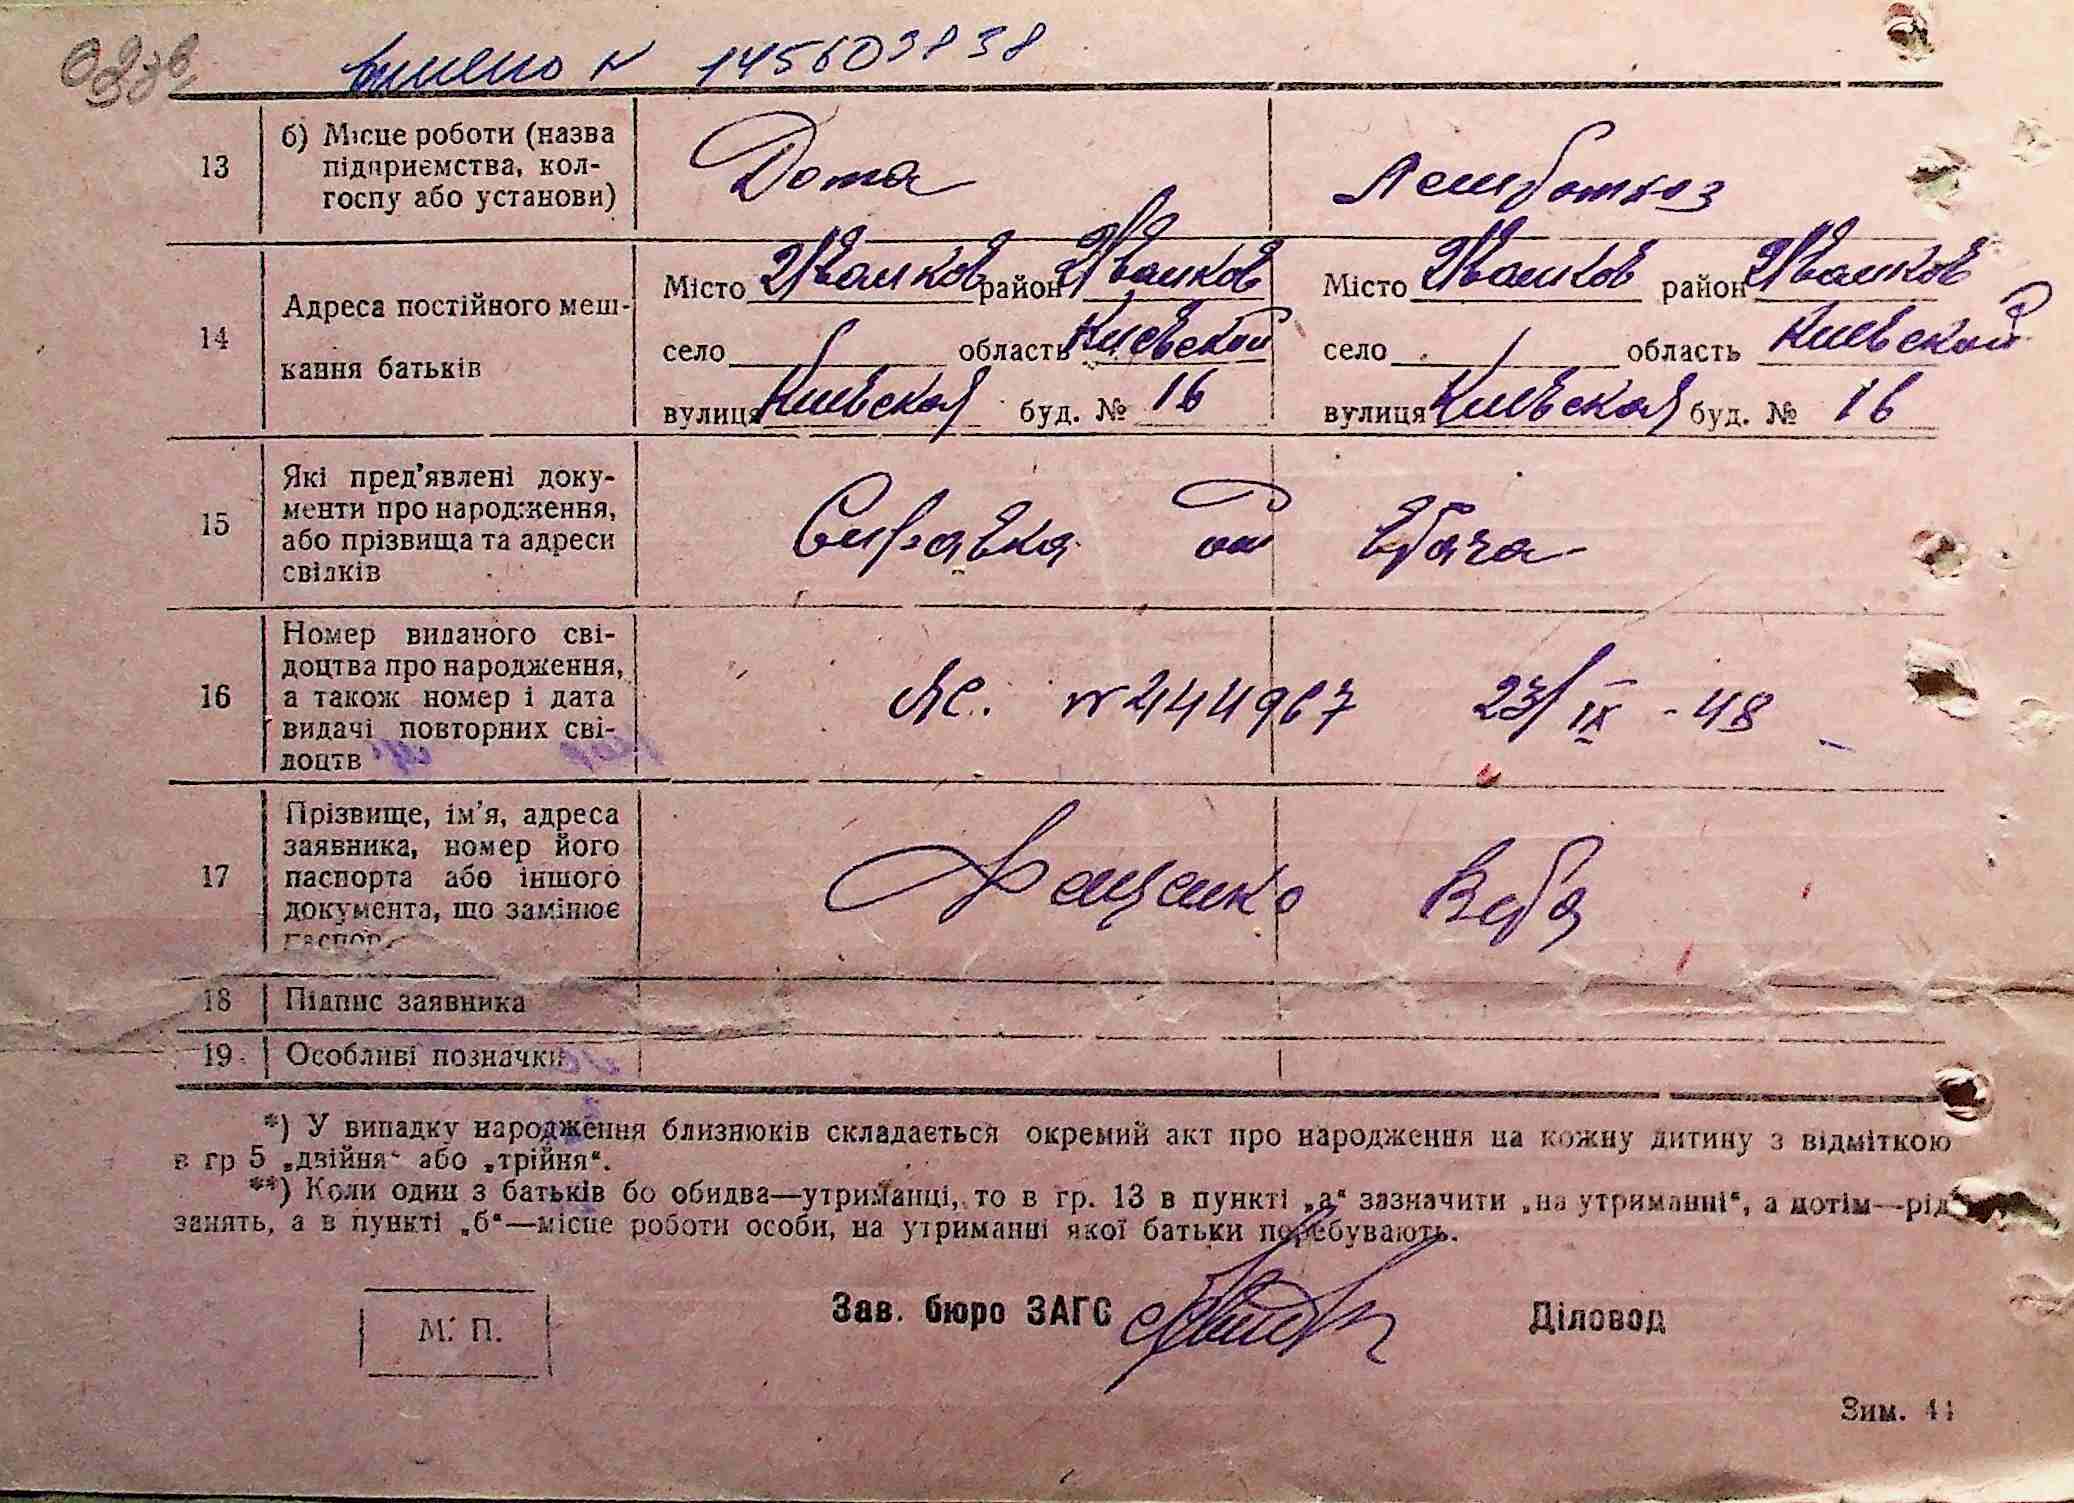 внесено N 145603838
13 б) Місце роботи (назва підприємства, колгоспу або установи) Дома
14 Адреса постійного меш-
кання батьків
Місто Иванков район Иванков Місто Иванков район Иванков
село / область Киевской село / область Киевской
вулиця Киевская буд. № 16 вулиця Киевская буд. № 16
15 Які пред'явлені доку-
менти про народження,
або прізвища та адреси
свідків
Справка от врача
16 Номер виданого сві-
доцтва про народження,
а також номер і дата
видачі повторних сві-
доцтв
ЯС. N 444967 23/IX - 48
17 Прізвище, ім'я, адреса
заявника, номер його
паспорта або іншого
документа, що замінює
паспорт
Фащенко
18 Підпис заявника
19 Особливі позначки
*) У випадку народження близнюків складається окремий акт про народження на кожну дитину з відміткою
в гр 5 „двійня“ або „трійня“.
**) Коли один з батьків бо обидва—утриманці, то в гр. 13 в пункті „а“ зазначити „на утриманні“, а потім—рід
занять, а в пункті „б“—місце роботи особи, на утриманні якої батьки перебувають.
М. П. Зав. бюро ЗАГС Діловод
Зим. 44